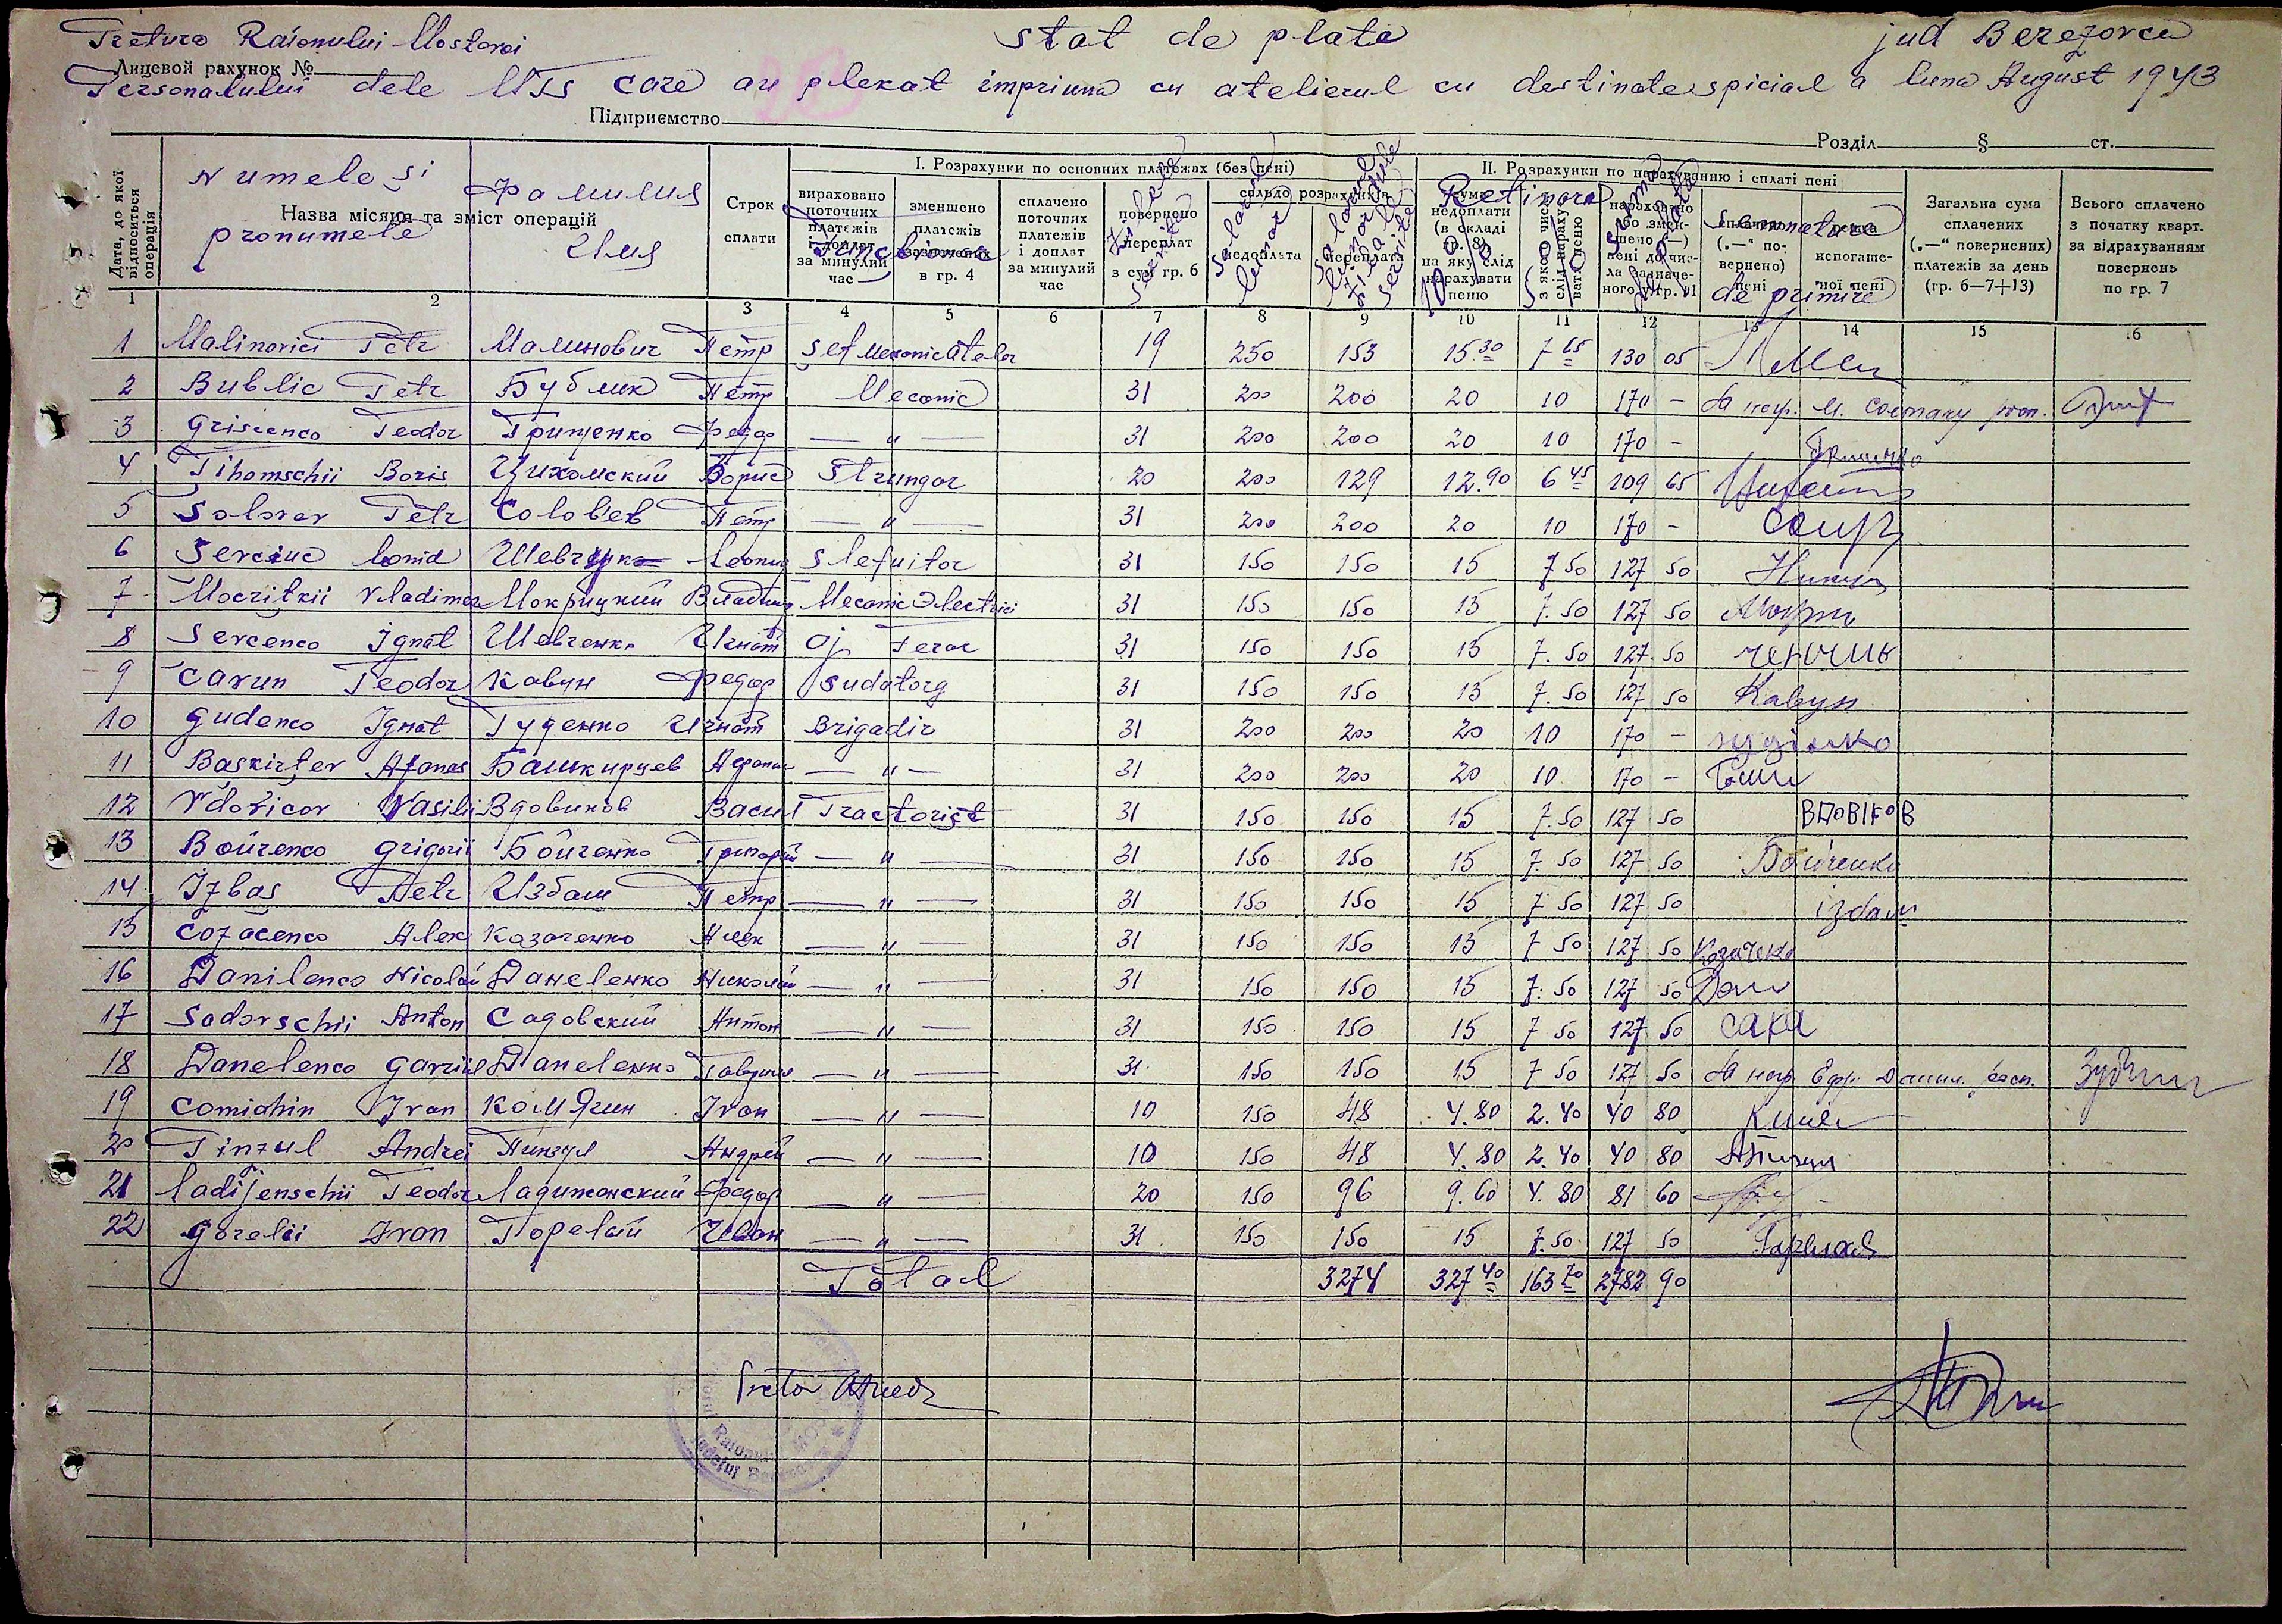 Pretura Raionului Mostovoi stat de plata jud Berezovca
Лицевой рахунок №
Personalului dele MTS care au plekat impriuna cu atelierul cu destinate spicial a luna August 1943
Підприємство
Розділ § ст.
Дата, до якої відноситься операція
Numele si pronumele
Фамилия Имя
Назва місяця та зміст операцій
Строк сплати
І. Розрахунки по основних платежах (без пені)
вираховано поточних платежів і доплат за минулий час
зменшено платежів в гр. 4
сплачено поточних платежів і доплат за минулий час
повернено переплат з сум гр. 6
Zilele Servite
сальдо розрахунків
недоплати
Salarul lunar
переплати
Salarul lunar Zilele Servite
ІІ. Розрахунки по нарахуванню і сплаті пені
Retinere
сума недоплати (в окладі гр. 8) на яку слід нарахувати пеню
10%
з якого чис. слід нарахувати пеню
5%
нараховано або зменшено (—) пені до числа зазначеного у гр. 11
Suma de plata
сплачено („—“ повернено) пені
непогашеної пені
Semnatura de primire
Загальна сума сплачених („—“ повернених) платежів за день (гр. 6—7+13)
Всього сплачено з початку кварт. за відрахуванням повернень по гр. 7
1 2 3 4 5 6 7 8 9 10 11 12 13 14 15 16
1 Malinovici Petr Малинович Петр Şef Mecanic Atelor 19 250 153 15.30 7 65 130 05
2 Bublic Petr Бублик Петр Mecanic 31 200 200 20 10 170 -
3 Griscenco Teodor Грищенко Федор — " — 31 200 200 20 10 170 - Грищенко
4 Tihomschii Boris Цихомский Борис Strungar 20 200 129 12.90 6 45 109 65
5 Solovev Petr Соловьев Петр — " — 31 200 200 20 10 170 -
6 Sevciuc Leonid Шевчук Леонид Slefuitor 31 150 150 15 7 50 127 50
7 Mocritkii Vladimer Мокрицкий Владимир Mecanic Electrici 31 150 150 15 7.50 127 50
8 Sevcenco Ignat Шевченко Игнат Aj Ferar 31 150 150 15 7.50 127 50
9 Cavun Teodor Кавун Федор Sudatorg 31 150 150 15 7.50 127 50 Кавун
10 Gudenco Ignat Гуденко Игнат Brigadir 31 200 200 20 10 170 -
11 Baskirţev Afanas Башкирцев Афанас — " — 31 200 200 20 10 170 -
12 Vdovicov Vasilii Вдовиков Васил Tractorist 31 150 150 15 7.50 127 50 ВДОВІКОВ
13 Boicenco Grigorii Бойченко Григорий — " — 31 150 150 15 7.50 127 50 Бойченко
14 Izbas Petr Избаш Петр — " — 31 150 150 15 7 50 127 50 ізбаш
15 Cozacenco Alex Казаченко Алек — " — 31 150 150 15 7 50 127 50 Козаченко
16 Danilenco Nicolai Данеленко Николай — " — 31 150 150 15 7.50 127 50 Дан
17 Sadovschii Anton Садовский Антон — " — 31 150 150 15 7 50 127 50
18 Danelenco Gavriil Данеленко Гавриил — " — 31 150 150 15 7 50 127 50
19 Comiahin Ivan Комягин Ivan — " — 10 150 48 4.80 2.40 40 80
20 Pinzul Andrei Пинзул Андрей — " — 10 150 48 4.80 2.40 40 80
21 Ladijenschii Teodor Ладиженский Федор — " — 20 150 96 9.60 4.80 81 60
22 Gorelii Ivan Горелый Иван — " — 31 150 150 15 7.50 127 50
Total 3274 327 40 163 70 2782 90
Pretor
Raionului
Judeţul